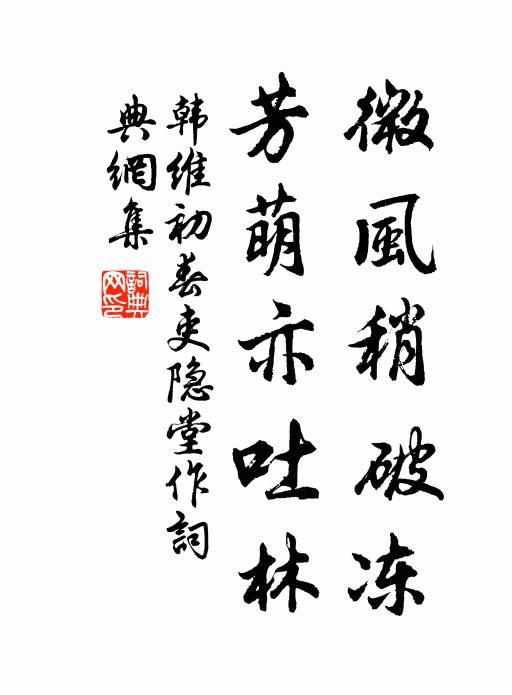 微風稍破冻
芳萌亦吐林
韩维初春吏隐堂作詞
典網集
詞典
网印